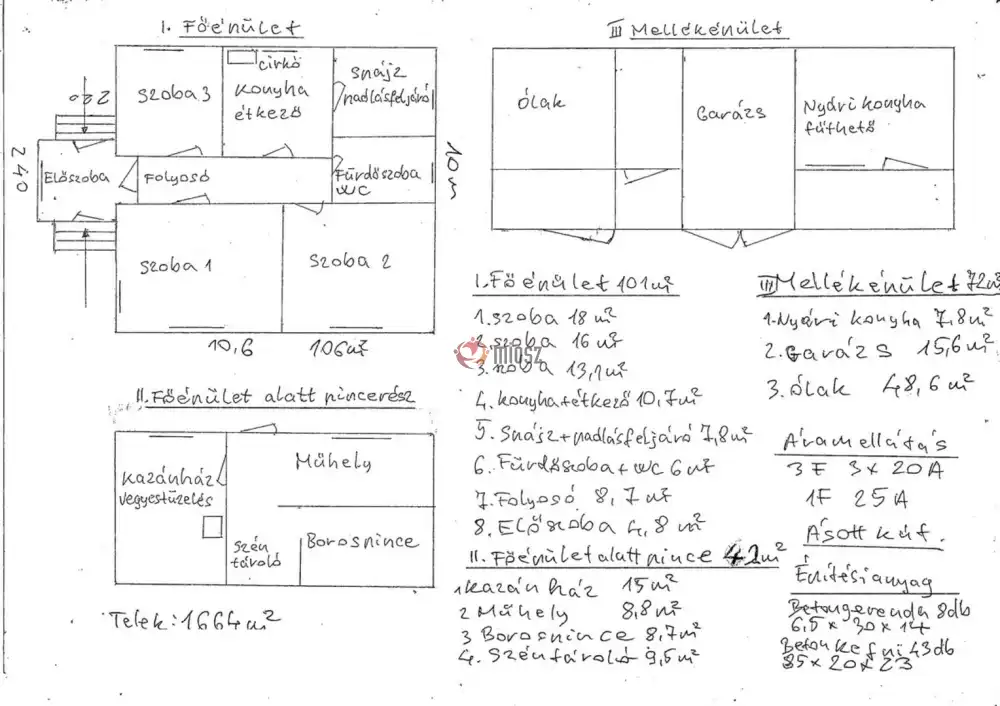 I. Főépület
cirkó
szoba 3
konyha
étkező
spájz
padlásfeljáró
220
240
Előszoba
Folyosó
Fürdőszoba
WC
10 m
szoba 1
szoba 2
10,6
106 m²
II. Főépület alatt pincerész
Kazánház
vegyestüzelés
Műhely
Szén
tároló
Borospince
Telek: 1664 m²
III Melléképület
Ólak
Garázs
Nyári konyha
fűthető
I. Főépület 101 m²
1. szoba 18 m²
2. szoba 16 m²
3. szoba 13,1 m²
4. Konyha+étkező 10,7 m²
5. Spájz+padlásfeljáró 7,8 m²
6. Fürdőszoba+WC 6 m²
7. Folyosó 8,7 m²
8. Előszoba 4,8 m²
miosz
II. Főépület alatt pince 42 m²
1 Kazán ház 15 m²
2 Műhely 8,8 m²
3 Borospince 8,7 m²
4. Széntároló 9,5 m²
III Melléképület 72 m²
1. Nyári konyha 7,8 m²
2. Garázs 15,6 m²
3. Ólak 48,6 m²
Áramellátás
3F 3 x 20 A
1F 25 A
Ásott kút.
Építési anyag
Betongerenda 8db
6,5 x 30 x 14
Beton 43db
35 x 20 x 23